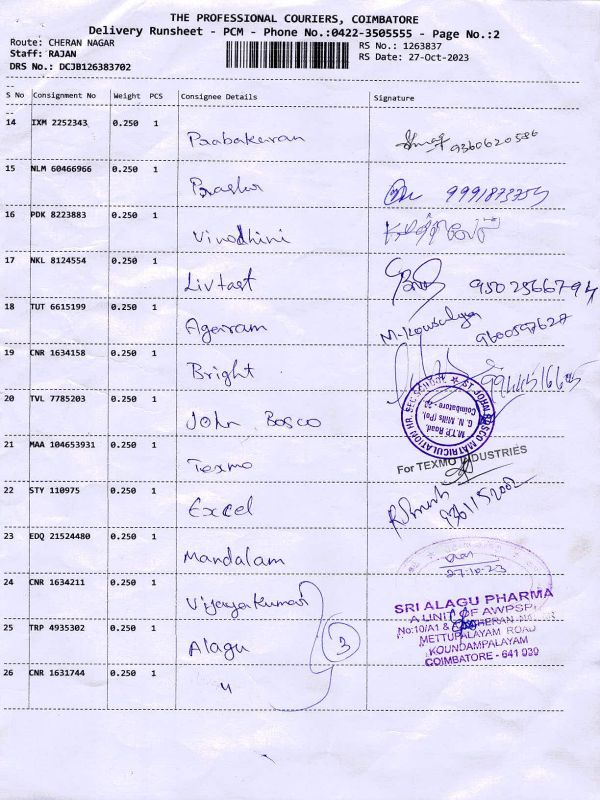 THE PROFESSIONAL COURIERS, COIMBATORE
Delivery Runsheet - PCM - Phone No.:0422-3505555 - Page No.:2
Route: CHERAN NAGAR
RS No.: 1263837
Staff: RAJAN
RS Date: 27-Oct-2023
DRS No.: DCJB126383702
S No Consignment No Weight PCS Consignee Details Signature
14 IXM 2252343 0.250 1 Prabakaran 9360620586
15 NLM 60466966 0.250 1
16 PDK 8223883 0.250 1 Vinodhini
17 NKL 8124554 0.250 1 Livfast 9502566794
18 TUT 6615199 0.250 1 Agaram M. Kousalya 9600597627
19 CNR 1634158 0.250 1 Bright
20 TVL 7785203 0.250 1 John Bosco
ST JOHN BOSCO MATRICULATION HR. SEC SCHOOL
M.T.P. Road,
G. N. Mills (Po),
Coimbatore - 29.
21 MAA 104653931 0.250 1 Texmo
For TEXMO INDUSTRIES
22 STY 110975 0.250 1 Excel
23 EDQ 21524480 0.250 1 Mandalam
27.10.23
24 CNR 1634211 0.250 1 Vijayakumar
25 TRP 4935302 0.250 1 Alagu 3
26 CNR 1631744 0.250 1 "
SRI ALAGU PHARMA
A UNIT OF AWPSPL
No:10/A1 & CHERAN
METTUPALAYAM ROAD
KOUNDAMPALAYAM
COIMBATORE - 641 030